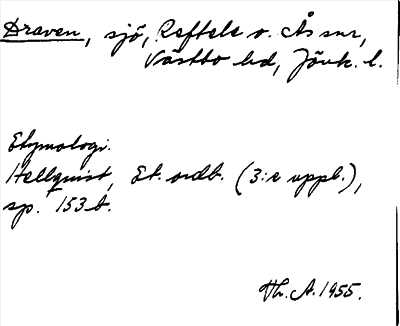 Draven, sjö, Reftele o. Ås snr,
Västbo hd, Jönk. l.
Etymologi.
Hellquist, Et. ordb. (3:e uppl.),
sp. 153 b.
Hr. A. 1955.